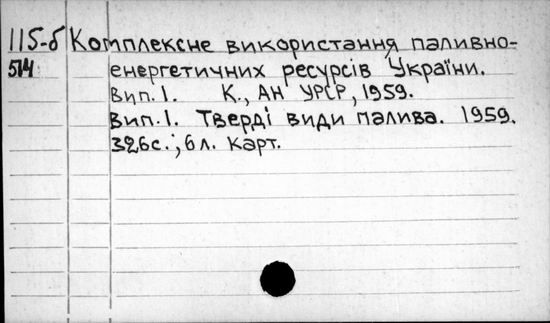 115-б Комплексне використання паливно-
514 енергетичних ресурсів України.
Вип.1. К., АН УРСР, 1959.
Вип.1. Тверді види палива. 1959.
326с.; 6л. карт.